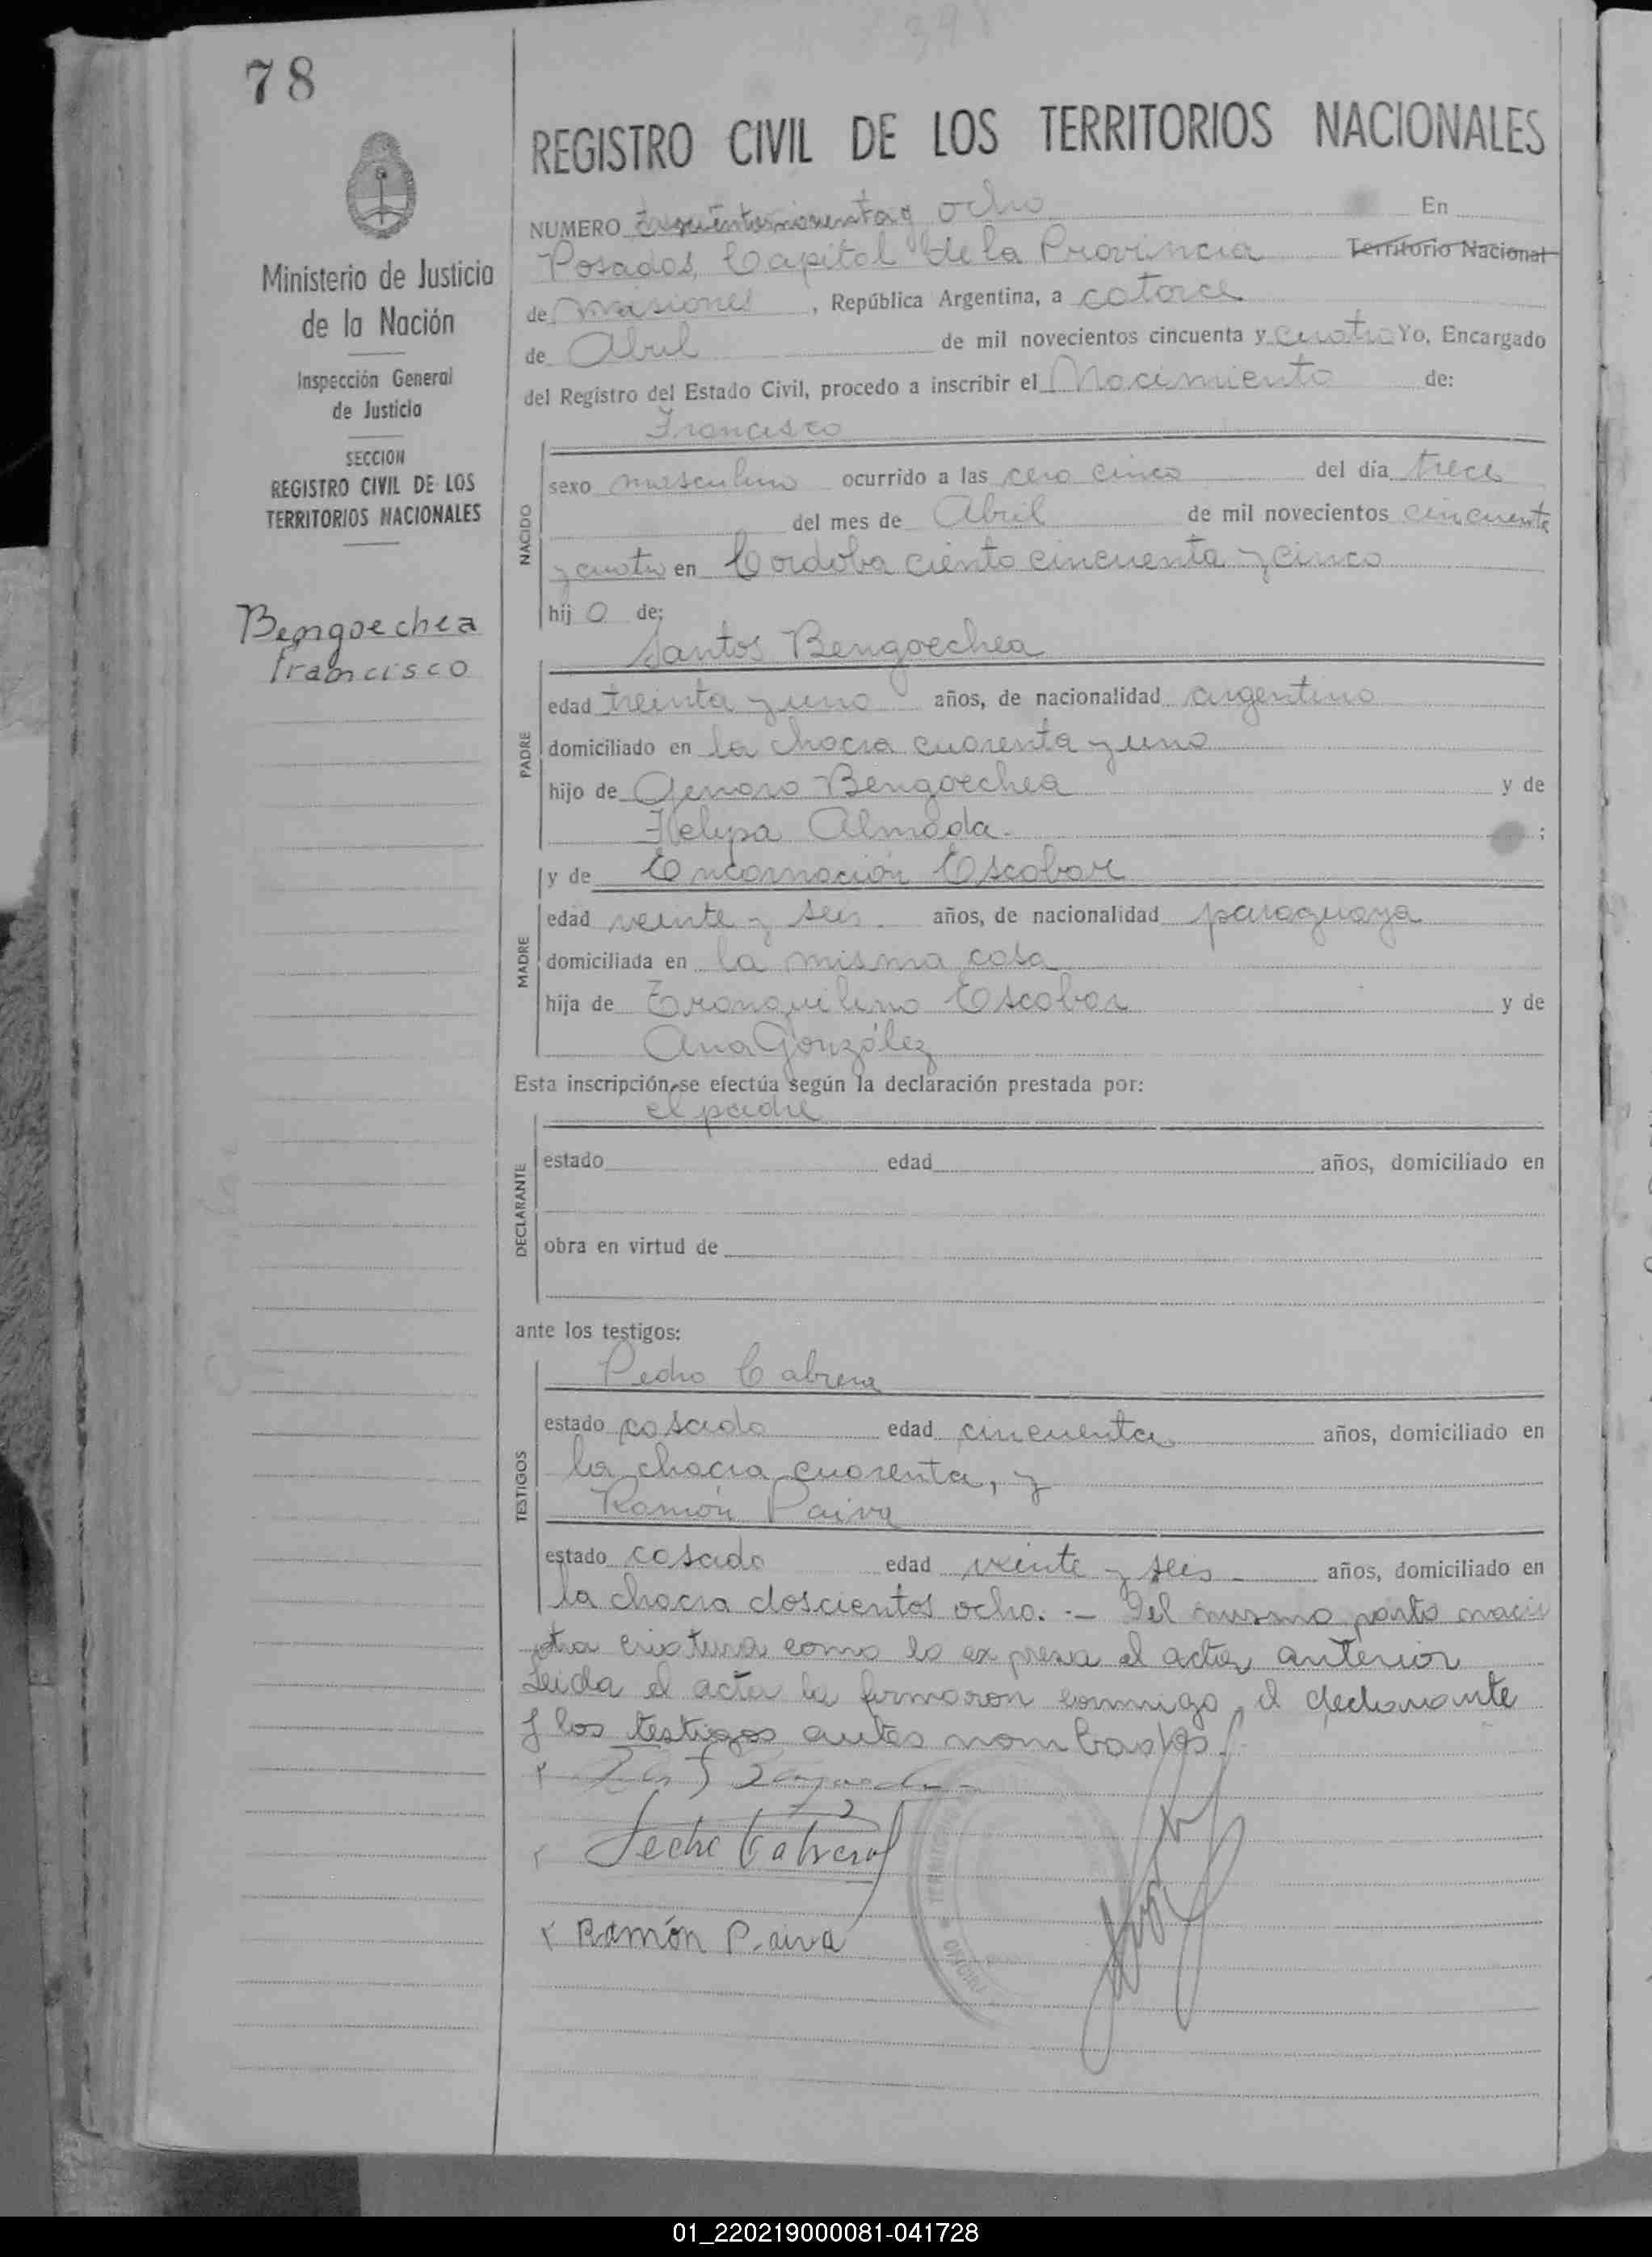 398
78
REGISTRO CIVIL DE LOS TERRITORIOS NACIONALES
Ministerio de Justicia
de la Nación
Inspección General
de Justicia
SECCION
REGISTRO CIVIL DE LOS
TERRITORIOS NACIONALES
Bengoechea
Francisco
NUMERO trescientos noventa y ocho En
Posadas, Capital de la Provincia Territorio Nacional
de Misiones, República Argentina, a catorce
de Abril de mil novecientos cincuenta y cuatro Yo, Encargado
del Registro del Estado Civil, procedo a inscribir el Nacimiento de:
NACIDO
Francisco
sexo masculino ocurrido a las cero cinco del día trece
del mes de Abril de mil novecientos cincuenta
y cuatro en Cordoba ciento cincuenta y cinco
hij o de:
PADRE
Santos Bengoechea
edad treinta y uno años, de nacionalidad argentino
domiciliado en la chacra cuarenta y uno
hijo de Genaro Bengoechea y de
Felipa Almada. ;
MADRE
y de Encarnación Escobar
edad veinte y seis. años, de nacionalidad paraguaya
domiciliada en la misma casa
hija de Tranquilino Escobar y de
Ana González
Esta inscripción, se efectúa según la declaración prestada por:
DECLARANTE
el padre
estado edad años, domiciliado en
obra en virtud de
ante los testigos:
TESTIGOS
Pedro Cabrera
estado casado edad cincuenta años, domiciliado en
la chacra cuarenta, y
Ramón Paiva
estado casado edad veinte y seis - años, domiciliado en
la chacra doscientos ocho. - Del mismo parto nació
otra criatura como lo expresa el acta anterior
Leida el acta la firmaron conmigo, el declarante
y los testigos antes nombrados.
Pedro Cabrera
x Ramón Paiva
01_220219000081-041728